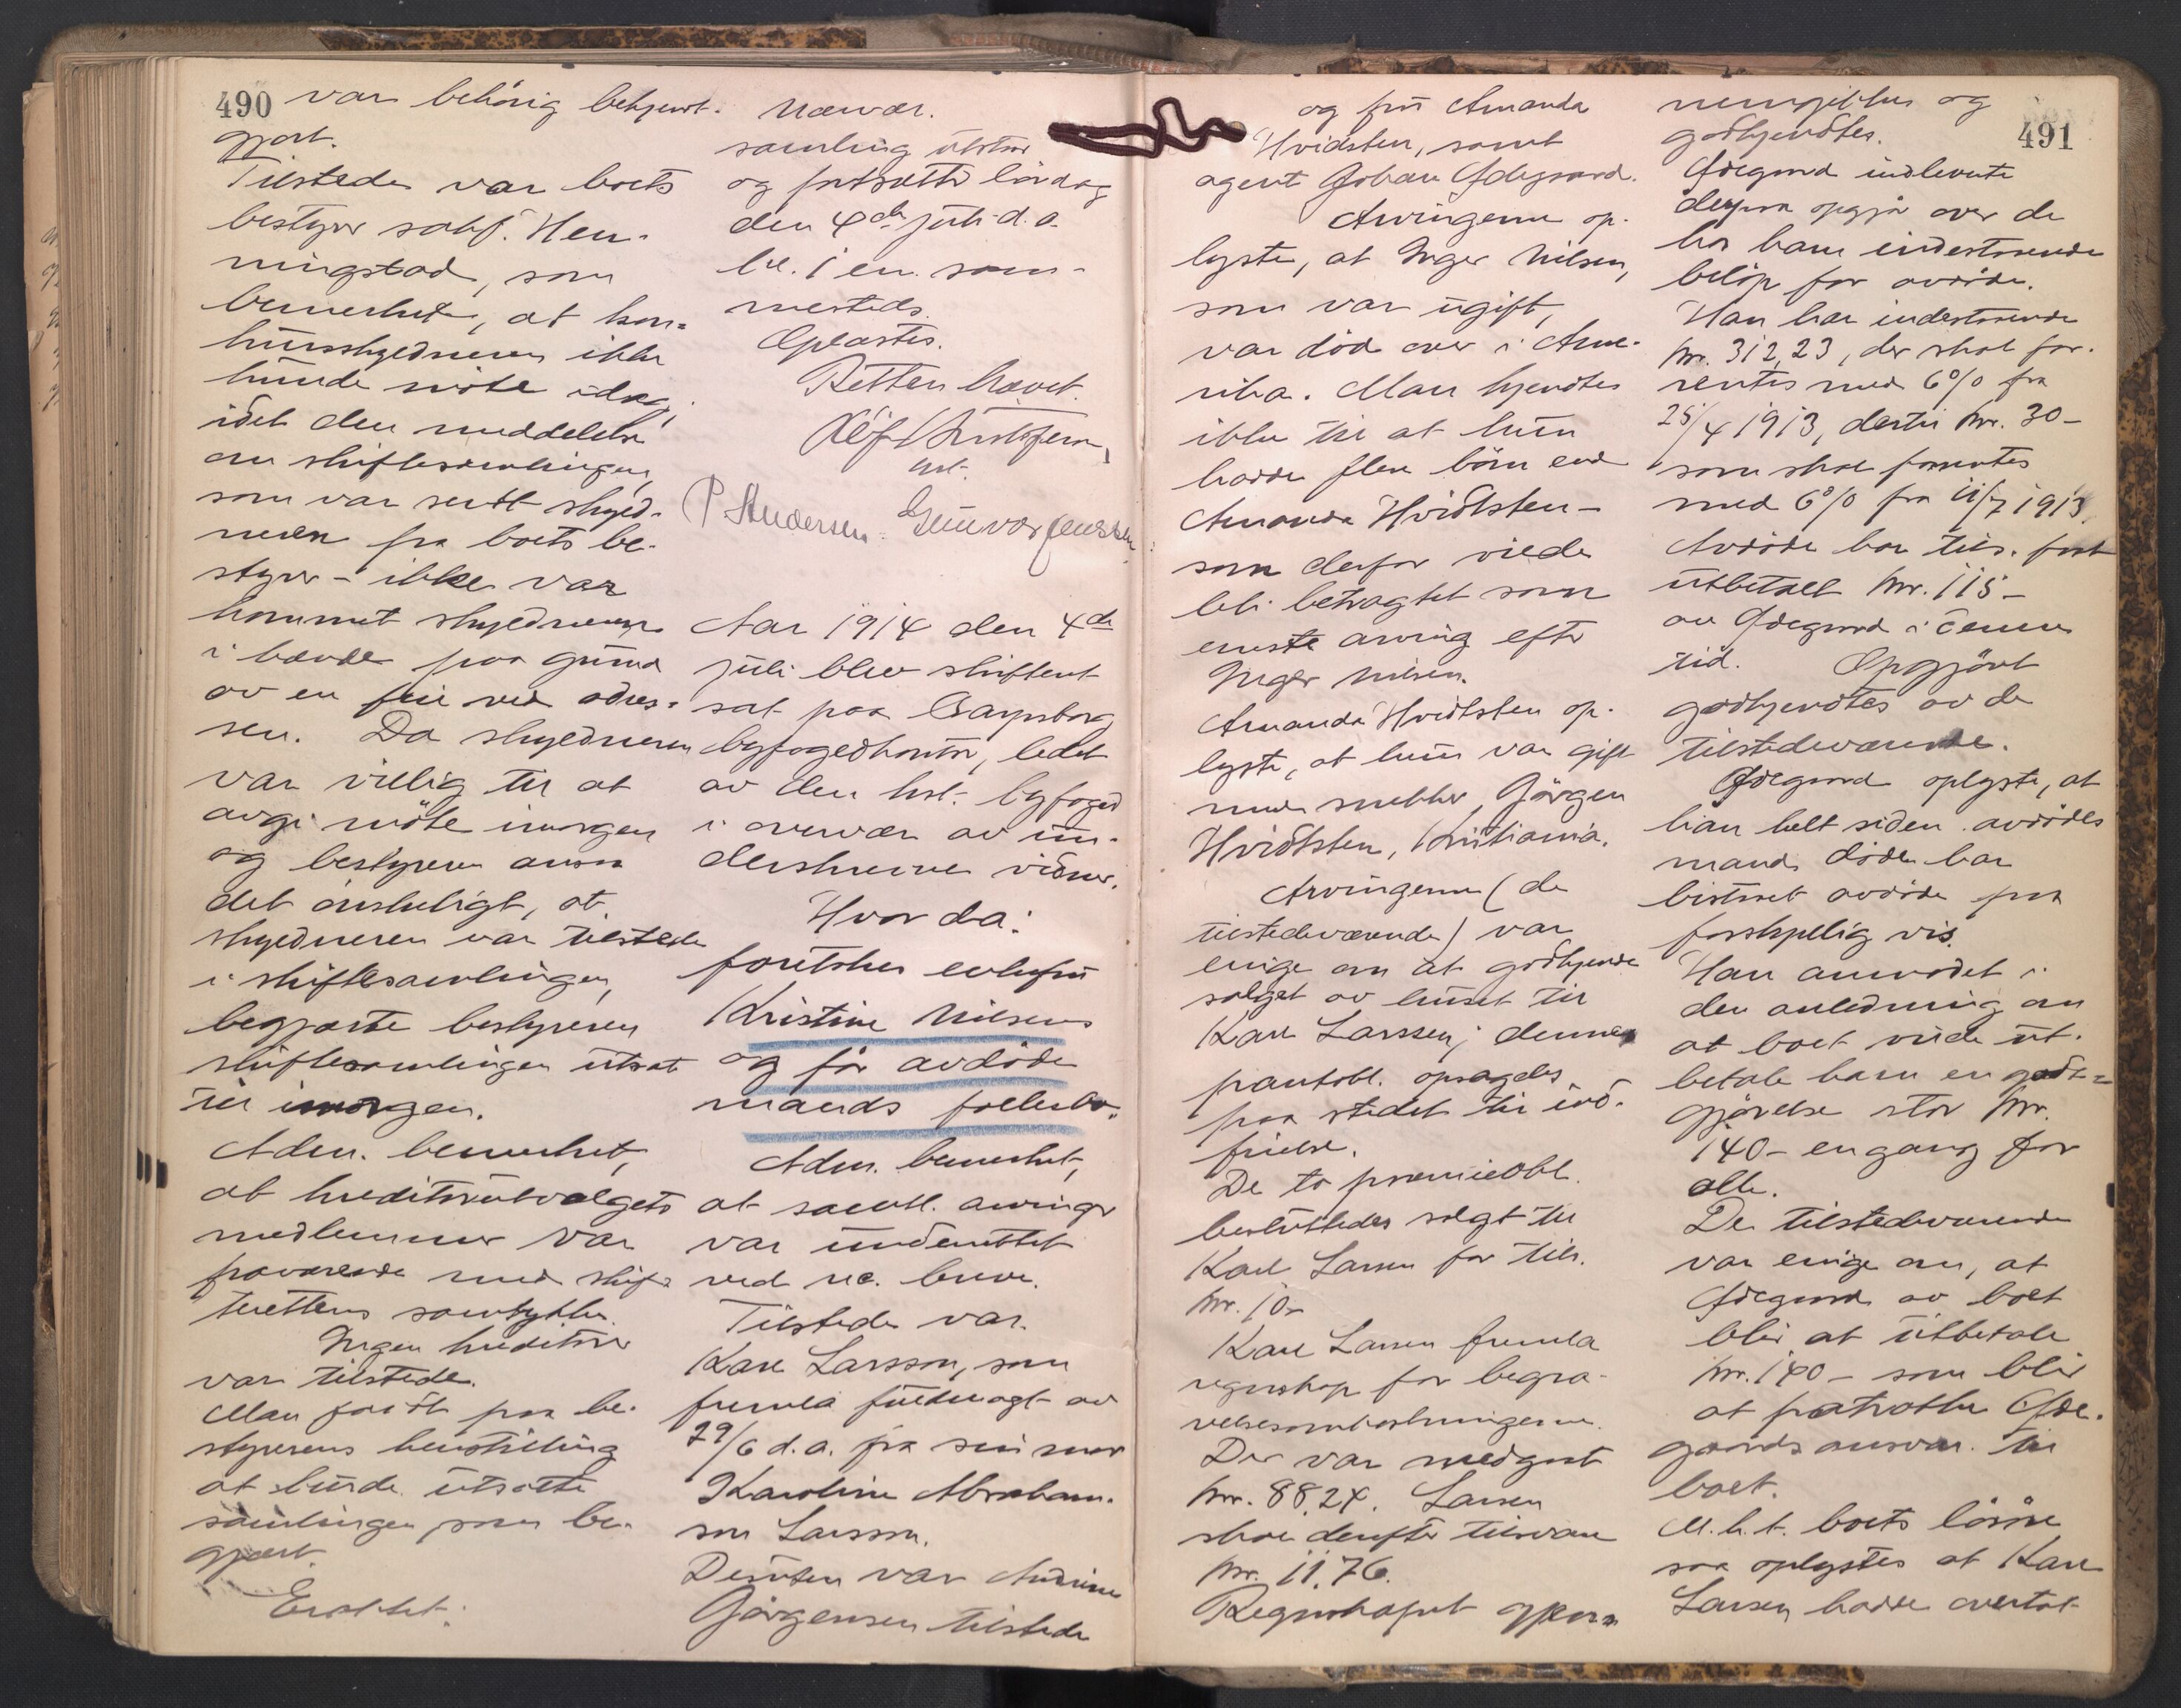 490
var behörig bekjent-
gjort.
Tilstede var boets
bestyrer sakf. Hen-
ningstad, som
bemerket, at kon-
kursskyldneren ikke
kunde möte idag,
idet den meddelelse
om skiftesamlingen,
som var sendt skyld-
neren fra boets be-
styrer - ikke var
kommet skyldneren
i hænde paa grund
av en feil ved adres-
sen. Da skyldneren
var villig til at
avgi möte imorgen
og bestyreren ansaa
det önskeligt, at
skyldneren var tilstede
i skiftesamlingen,
begjærte bestyreren
skiftesamlingen utsat
til imorgen.
Adm. bemerket,
at kreditorutvalgets
medlemmer var
fraværende med skif-
terettens samtykke.
Ingen kreditor
var tilstede.
Man fandt paa be-
styrerens henstilling
at burde utsætte
samlingen som be-
gjært.
Eralitet:
Nærvær.
samling utstaar
og fortsættes lördag
den 4de juli d.a.
kl. 1 em. sam-
mesteds.
Oplæstes.
Retten hævet.
Leif Kristofersen
kst.
P Andersen. Gunvor Jenssen
Aar 1914 den 4de
juli blev skifteret
sat paa Sarpsborg
byfogedkontor, ledet
av den kst. byfoged
i overvær av un-
derskrevne vidner.
Hvor da:
foretokes enkefru
Kristine Nilsens
og för avdöde
mands fællesbo.
Adm. bemerket,
at samtl. arvinger
var underrettet
ved rec. breve.
Tilstede var
Karl Larsson, som
fremla fuldmagt av
29/6 d.a. fra sin mor
Karoline Abraham-
son Larsson.
Desuten var Andrine
Görgensen tilstede
491
og fru Amanda
Hvidsten, samt
agent Johan Ödegaard.
Arvingerne op-
lyste, at Inger Nilsen,
som var ugift,
var död over i Ame-
rika. Man kjendtes
ikke til at hun
hadde flere börn end
Amanda Hvidtsten -
som derfor vilde
bli betragtet som
eneste arving efter
Inger Nilsen.
Amanda Hvidtsten op-
lyste, at hun var gift
med snekker Görgen
Hvidtsten, Kristiania.
Arvingerne (de
tilstedeværende) var
enige om at godkjende
salget av huset til
Karl Larssen; dennes
pantobl. opsagdes
paa stedet til ind-
frielse.
De to præmieobl.
besluttedes solgt til
Karl Larsen for tils.
kr. 10.-
Karl Larsen fremla
regnskap for begra-
velsesomkostningerne.
Der var medgaat
kr. 88.24. Larsen
skal derefter tilsvare
kr. 11.76.
Regnskapet gjen-
nemgikkes og
godkjendtes.
Ödegaard indleverte
derpaa opgjör over de
hos ham indestaaende
belöp for avdöde.
Han har indestaaende
kr. 312,23, der skal for-
rentes med 6% fra
25/4 1913, dertil kr. 30-
som skal forrentes
med 6% fra 11/7 1913.
Avdöde har tils. faat
utbetalt kr. 115-
av Ödegaard i denne
tid. Opgjöret
godkjendtes av de
tilstedeværende.
Ödegaard oplyste, at
han helt siden avdödes
mands död har
bistaaet avdöde paa
forskjellig vis.
Han anmodet i
den anledning om
at boet vilde ut-
betale ham en godt-
gjörelse stor kr.
140- en gang for
alle.
De tilstedeværende
var enige om, at
Ödegaard av boet
blir at utbetale
kr. 140- som blir
at fratrække Öde-
gaards ansvar til
boet.
M.h.t. boets lösöre
saa oplystes at Karl
Larsen hadde overtat